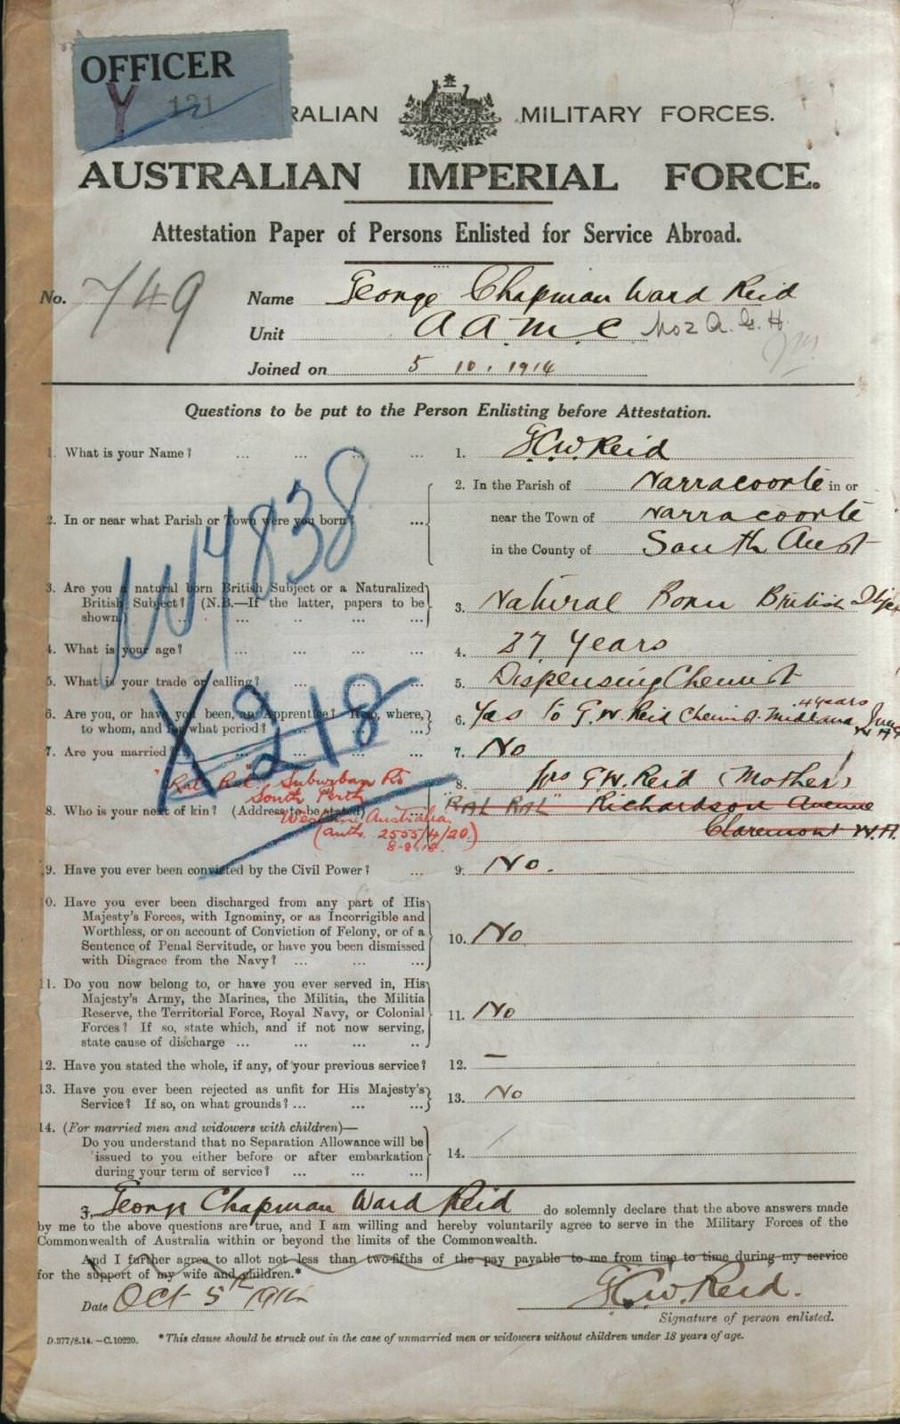 OFFICER
Y 121
RALIAN MILITARY FORCES.
AUSTRALIAN IMPERIAL FORCE.
Attestation Paper of Persons Enlisted for Service Abroad.
No. 749
Name George Chapman Ward Reid
Unit A A M C No 2 A. G. H.
Joined on 5 10. 1914
Questions to be put to the Person Enlisting before Attestation.
1. What is your Name? ... ... ... ... 1. G.C.W. Reid
2. In or near what Parish or Town were you born? ... 2. In the Parish of Narracoorte in or
near the Town of Narracoorte
in the County of South Aust
W4838
3. Are you a natural born British Subject or a Naturalized
British Subject? (N.B.—If the latter, papers to be
shown) ... ... ... ... 3. Natural Born British Subject
4. What is your age? ... ... ... ... 4. 27 Years
5. What is your trade or calling? ... ... ... 5. Dispensing Chemist
6. Are you, or have you been, an Apprentice? If so, where,
to whom, and for what period? ... ... 6. Yes to G.W. Reid Chemist Midland Junc 4 years
W.A.
X218
7. Are you married? 7. No
8. Who is your next of kin? (Address to be stated) ... 8. Mrs G.W. Reid (Mother)
"RAL RAL" Richardson Avenue
Claremont W.A.
"Ral Ral", Suburban Rd
South Perth
Western Australia
(auth. 2555/4/20.)
9. Have you ever been convicted by the Civil Power? ... 9. No.
0. Have you ever been discharged from any part of His
Majesty's Forces, with Ignominy, or as Incorrigible and
Worthless, or on account of Conviction of Felony, or of a
Sentence of Penal Servitude, or have you been dismissed
with Disgrace from the Navy? ... ... ... 10. No
1. Do you now belong to, or have you ever served in, His
Majesty's Army, the Marines, the Militia, the Militia
Reserve, the Territorial Force, Royal Navy, or Colonial
Forces? If so, state which, and if not now serving,
state cause of discharge ... ... ... .. 11. No
12. Have you stated the whole, if any, of your previous service? 12. —
13. Have you ever been rejected as unfit for His Majesty's
Service? If so, on what grounds? ... ... ... 13. No
14. (For married men and widowers with children)—
Do you understand that no Separation Allowance will be
issued to you either before or after embarkation
during your term of service? ... ... ... 14. /
I, George Chapman Ward Reid do solemnly declare that the above answers made
by me to the above questions are true, and I am willing and hereby voluntarily agree to serve in the Military Forces of the
Commonwealth of Australia within or beyond the limits of the Commonwealth.
And I further agree to allot not less than two-fifths of the pay payable to me from time to time during my service
for the support of my wife and children.*
Date Oct 5th 1914 G.C.W. Reid.
Signature of person enlisted.
D.377/8.14.—C.10220. *This clause should be struck out in the case of unmarried men or widowers without children under 18 years of age.